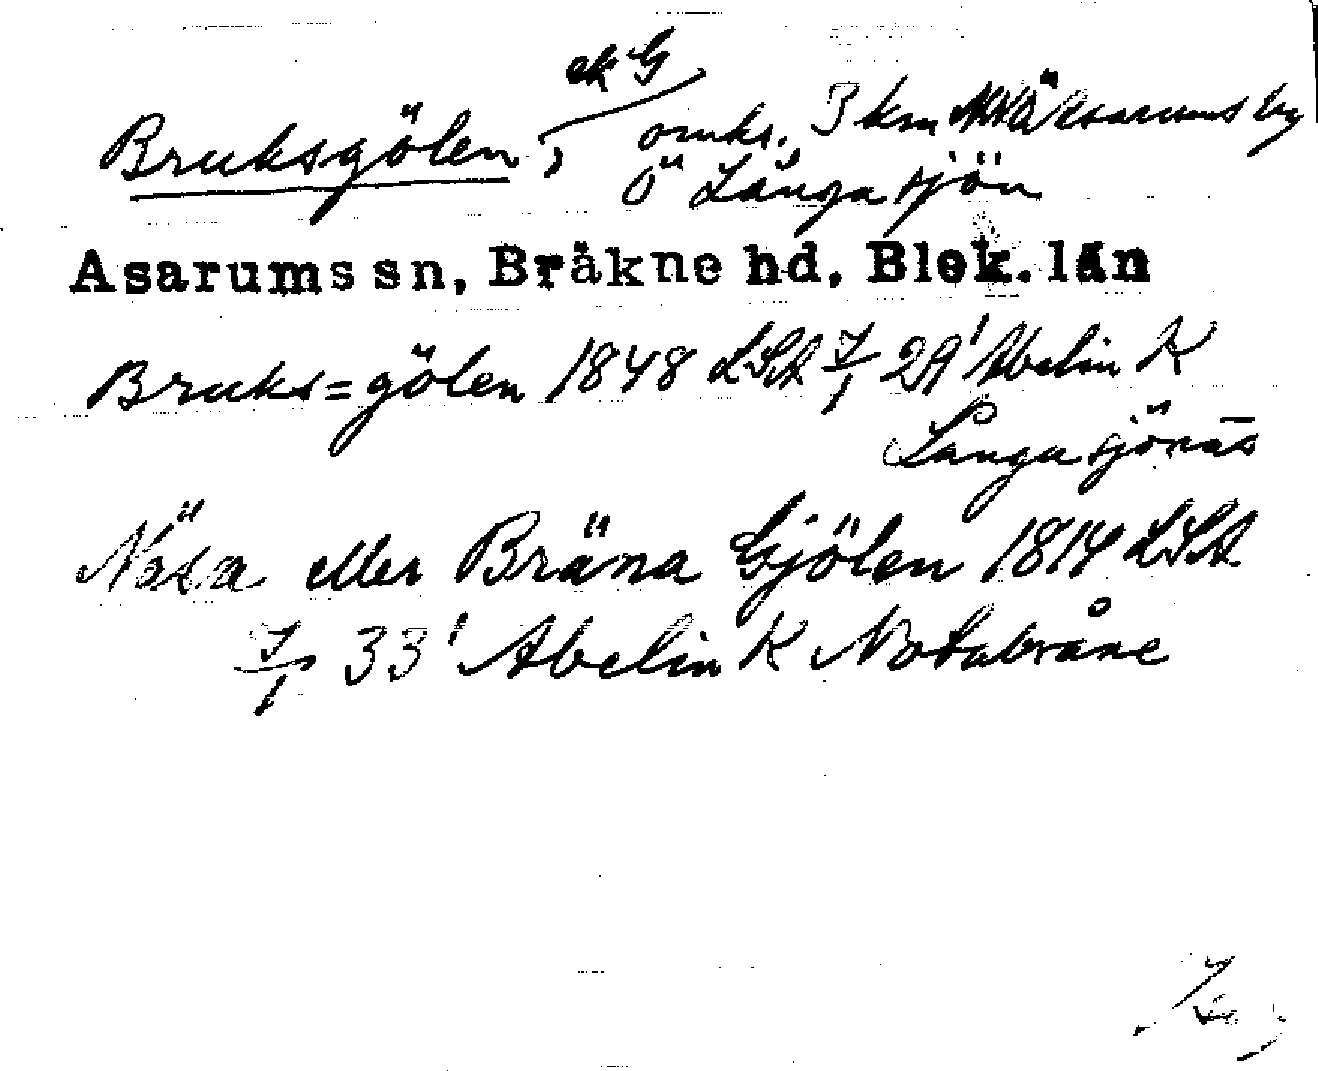 Bruksgölen, ek G omkr. 3 km NNÖ Asarums by
Ö Långasjön
Asarums sn, Bräkne hd, Blek. län
Bruks=gölen 1848 LSA 7/1 29' Abelin K
Långasjönäs
Näsa eller Bräna Gjölen 1814 LSA
7/1 33' Abelin K Notabråne